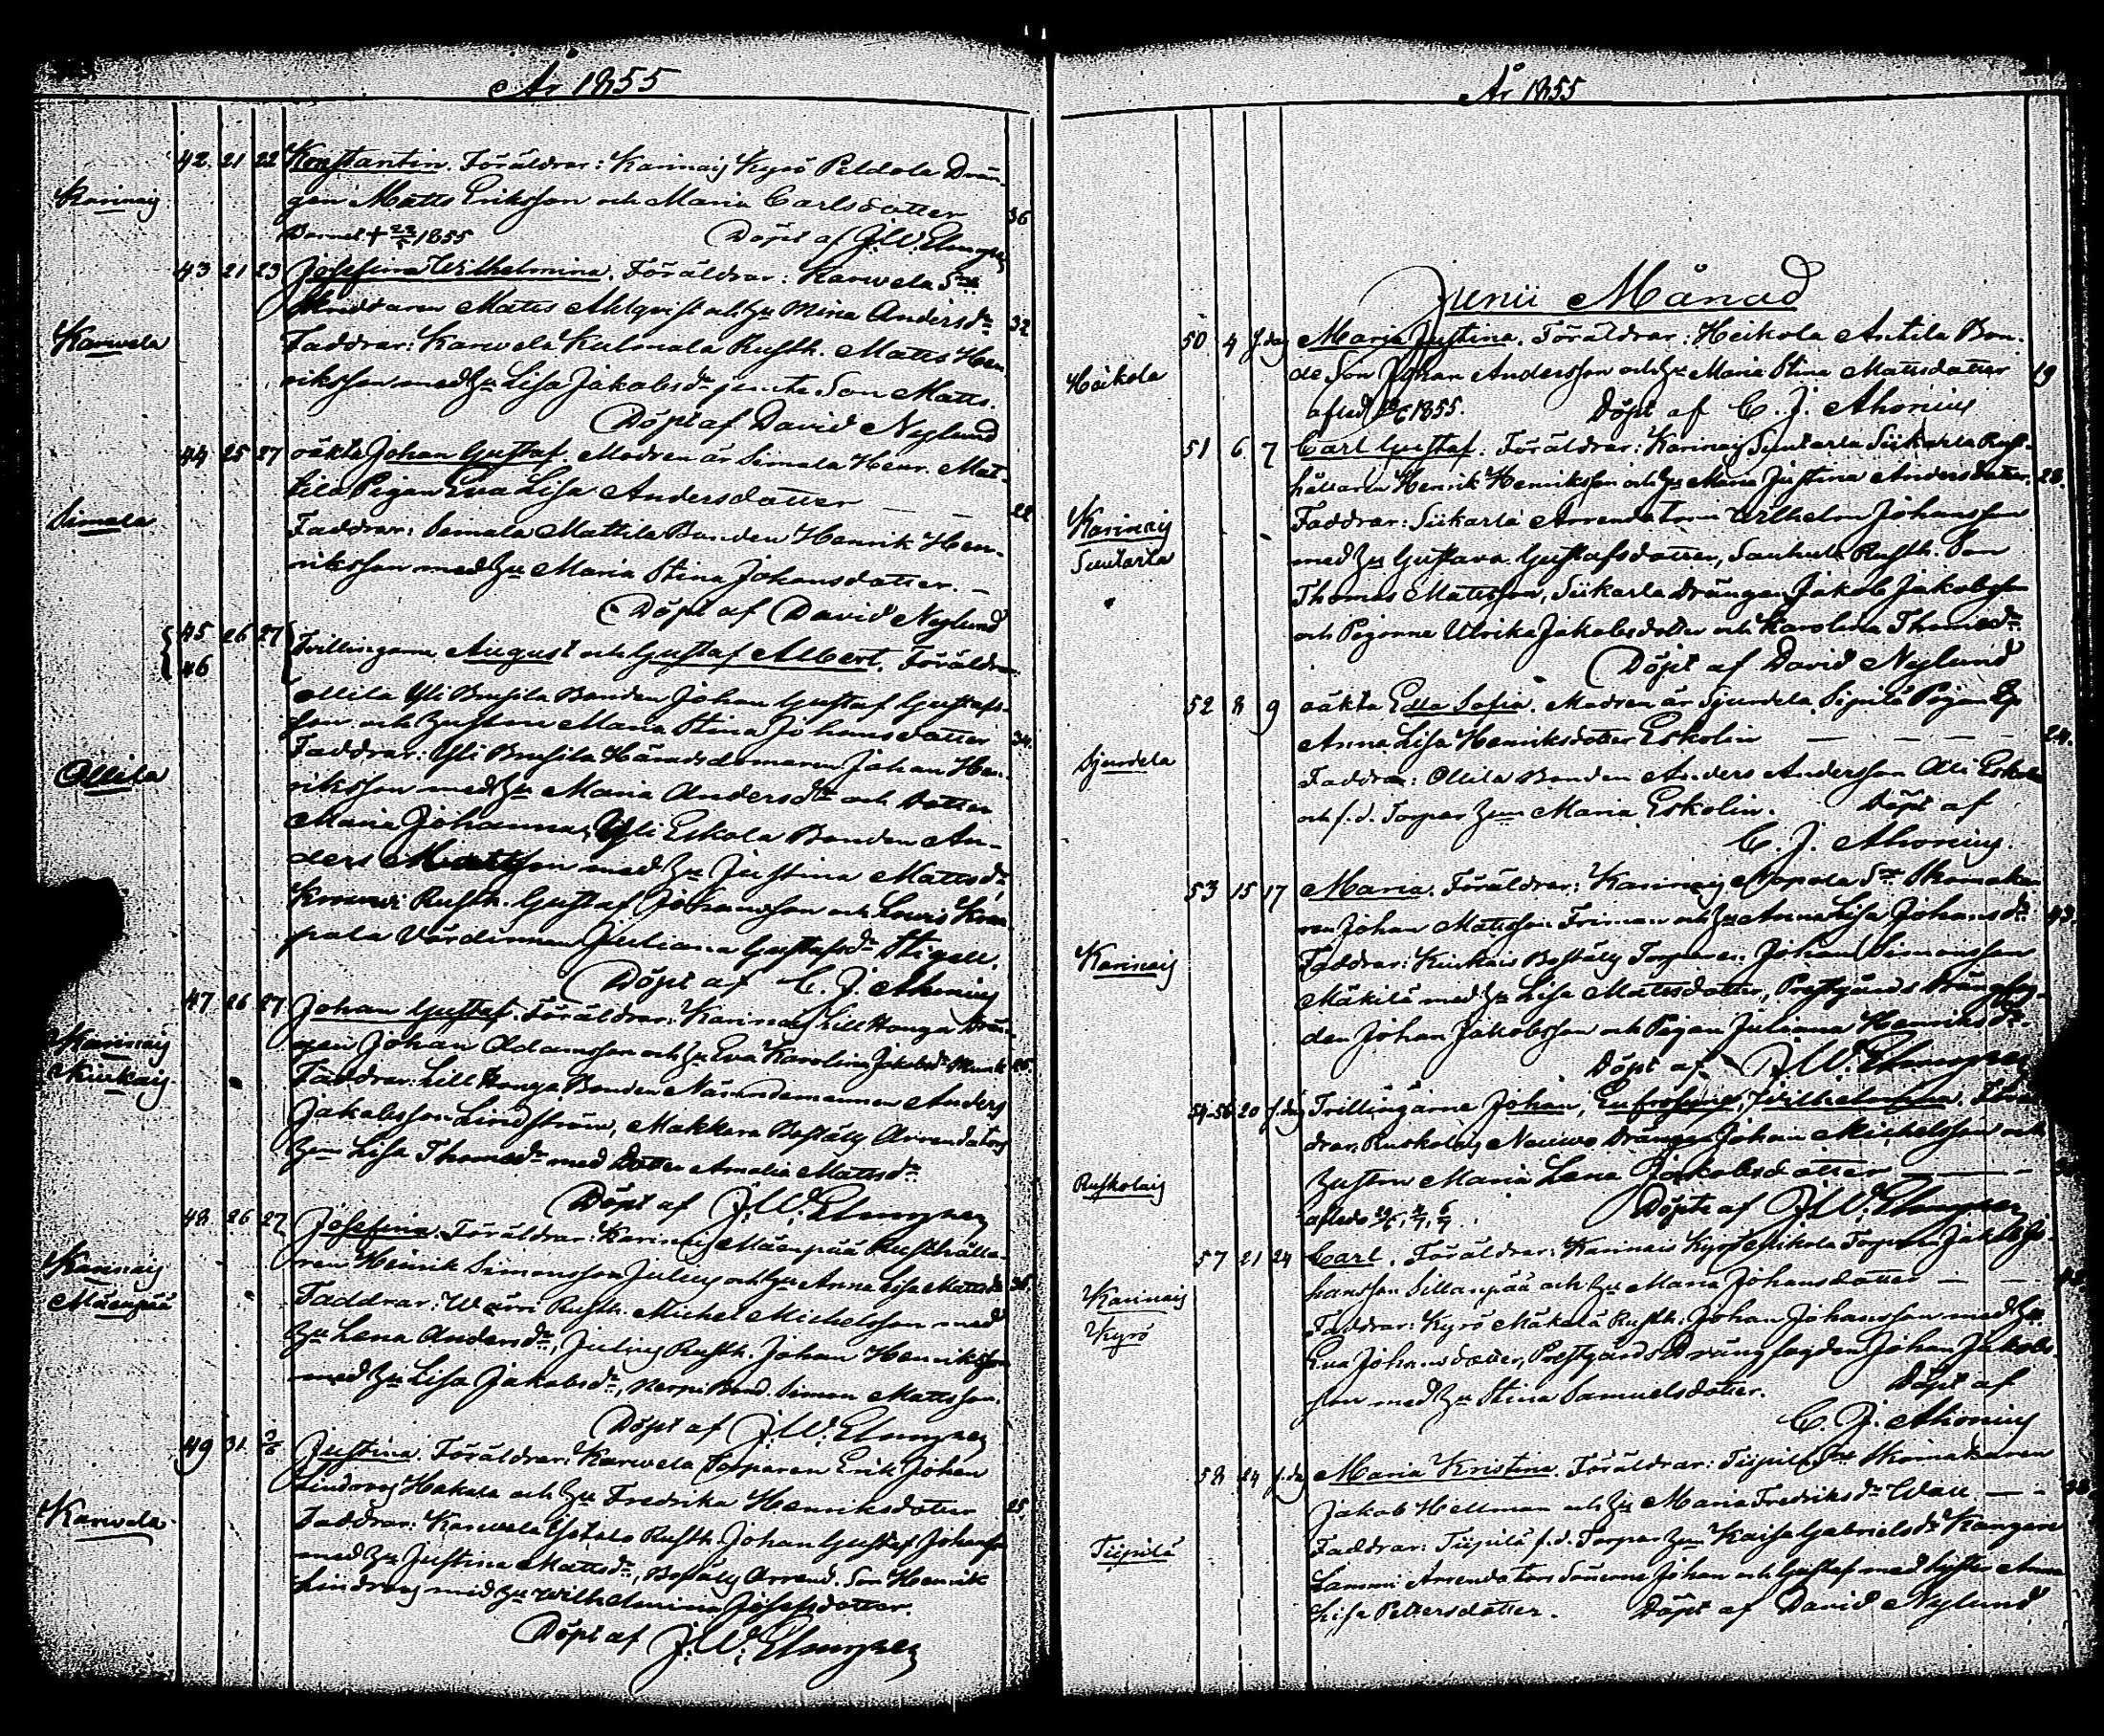 År 1855
42. 21 22 Konstantin. Föräldrar: Karinais Kyrö Peldola Drän-
Karinais
gen Matts Eriksson och Maria Carlsdotter 36
Barnet † 1855 Döpt af J.W. Elmgren
43 21 23 Josefina Wilhelmina. Föräldrar: Karvela
Skräddaren Matts Ahlqvist och Hu Mina Andersdr 32
Karvela
Faddrar: Karvela Kulmala Rusth. Matts Hen-
riksson med Hu Lisa Jakobsdr jemte Son Matts.
Döpt af David Nylund
44 25 27 oäkta Johan Gustaf. Modren är Simala Henr. Mat-
tila Pigan Eva Lisa Andersdotter — —
Simala
Faddrar: Simala Mattila Bonden Henrik Hen-
riksson med Hu Maria Stina Johansdotter. —
Döpt af David Nylund
45 26 27 Tvillingarne August och Gustaf Albert. Föräldrar
46
Ollila Yli Bussila Bonden Johan Gustaf Gustafs-
son och Hustrun Maria Stina Johansdotter 34.
Ollila
Faddrar: Yli Bussila Häradsdomaren Johan Hen-
riksson med Hu Maria Andersdr och Dotter
Maria Johanna, Yli Eskola Bonden An-
ders Mattsson med Hu Justina Mattsdr
Rusth. Gustaf Johansson och
Värdinnan Juliana Gustafsdr Stigell.
Döpt af C. J. Ahonius
47 26 27. Johan Gustaf. Föräldrar: Karinais Lill Honga Drän-
Karinais
gen Johan Adamsson och Hu Eva Karolina Jakobsdr 26.
Kiukais
Faddrar: Lill Honga Bonden Nämndemannen Anders
Jakobsson Lindström, Makkera Boställs Arrendators
Hun Lisa Thomasdr med Dotter Amalia Mattsdr
Döpt af J.W. Elmgren
48 26 27 Josefina. Föräldrar: Karinais Mäenpää Rusthålla-
Karinais
ren Henrik Simonsson Julius och Hu Anna Lisa Mattsdr
Mäenpää
Faddrar: Wärri Rusth. Michel Michelsson med
Hu Lena Andersdr, Julius Rusth. Johan Henriksson
med Hu Lisa Jakobsdr, Bond. Simon Mattsson.
Döpt af J.W. Elmgren
49 31. Justina. Föräldrar: Karvela Torparen Erik Johan
Lindroos Hakala och Hu Fredrika Henriksdotter 25
Karvela
Faddrar: Karvela Rusth. Johan Gustaf Johansson
med Hu Justina Mattsdr, Boställs Arrend. Son Henrik
Lindroos med Hu Wilhelmina Josefsdotter.
Döpt af J.W. Elmgren
År 1855
Junii Månad
50 4 f.dag Maria Justina. Föräldrar: Heikola Antila Bon-
Heikola
de Son Johan Andersson och Hu Maria Stina Mattsdotter 19
afled 1855. Döpt af C. J. Ahonius
51 6 7 Carl Gustaf. Föräldrar: Karinais Suutarla Siikarla Rust-
hållaren Henrik Henriksson och Hu Maria Justina Andersdotter. 28.
Karinais
Faddrar: Siikarla Arrendatorn Wilhelm Johansson
Suutarla
med Hu Gustava Gustafsdotter, Rusth. Son
Thomas Matsson, Siikarla Drängen Jakob Jakobsson
och Pigorna Ulrika Jakobsdotter och Karolina Thomasdr
Döpt af David Nylund
52 8 9 oäkta Edla Sofia. Modren är Sjundela Sipilä Pigan
Anna Lisa Henriksdotter Eskolin — — — — 24.
Sjundela
Faddrar: Ollila Bonden Anders Andersson Ali Eskola
och f.d. Torpar Hun Maria Eskolin. Döpt af
C. J. Ahonius.
53 15 17 Maria. Föräldrar: Karinais Skomaka-
ren Johan Mattsson Friman och Hu Anna Lisa Johansdr 43.
Karinais
Faddrar: Kiukais Boställs Torparen Johan Simonsson
Mäkilä med Hu Lisa Mattsdotter, Prestgårds Drängfog-
den Johan Jakobsson och Pigan Juliana Henriksdr.
Döpt af J.W. Elmgren
54-56 20 f.dag Trillingarne Johan, Eufrosyne, Wilhelmina. Föräl-
drar: Ruskolais Drängen Johan Michelsson och
Ruskolais
Hustrun Maria Lena Jakobsdotter — — —
afledo Döpte af J.W. Elmgren
57 21 24 Carl. Föräldrar: Karinais Kyrö Torparen Jakob Jo-
Karinais
hansson Sillanpää och Hu Maria Johansdotter — —
Kyrö
Faddrar: Kyrö Mäkelä Rusth. Johan Johansson med Hu
Eva Johansdotter, Prestgårds Drängfogden Johan Jakobs-
son med Hu Stina Samuelsdotter. Döpt af
C. J. Ahonius
58 24 f.dag Maria Kristina. Föräldrar: Tiipilä Skomakaren
Jakob Hellman och Hu Maria Fredriksdr — —
Tiipilä
Faddrar: Tiipilä f.d. Torpar Hun Kaisa Gabrielsdr Kangare
Lammi Arrendators Sönerne Johan och Gustaf med Syster Anna
Lisa Pettersdotter. Döpt af David Nylund